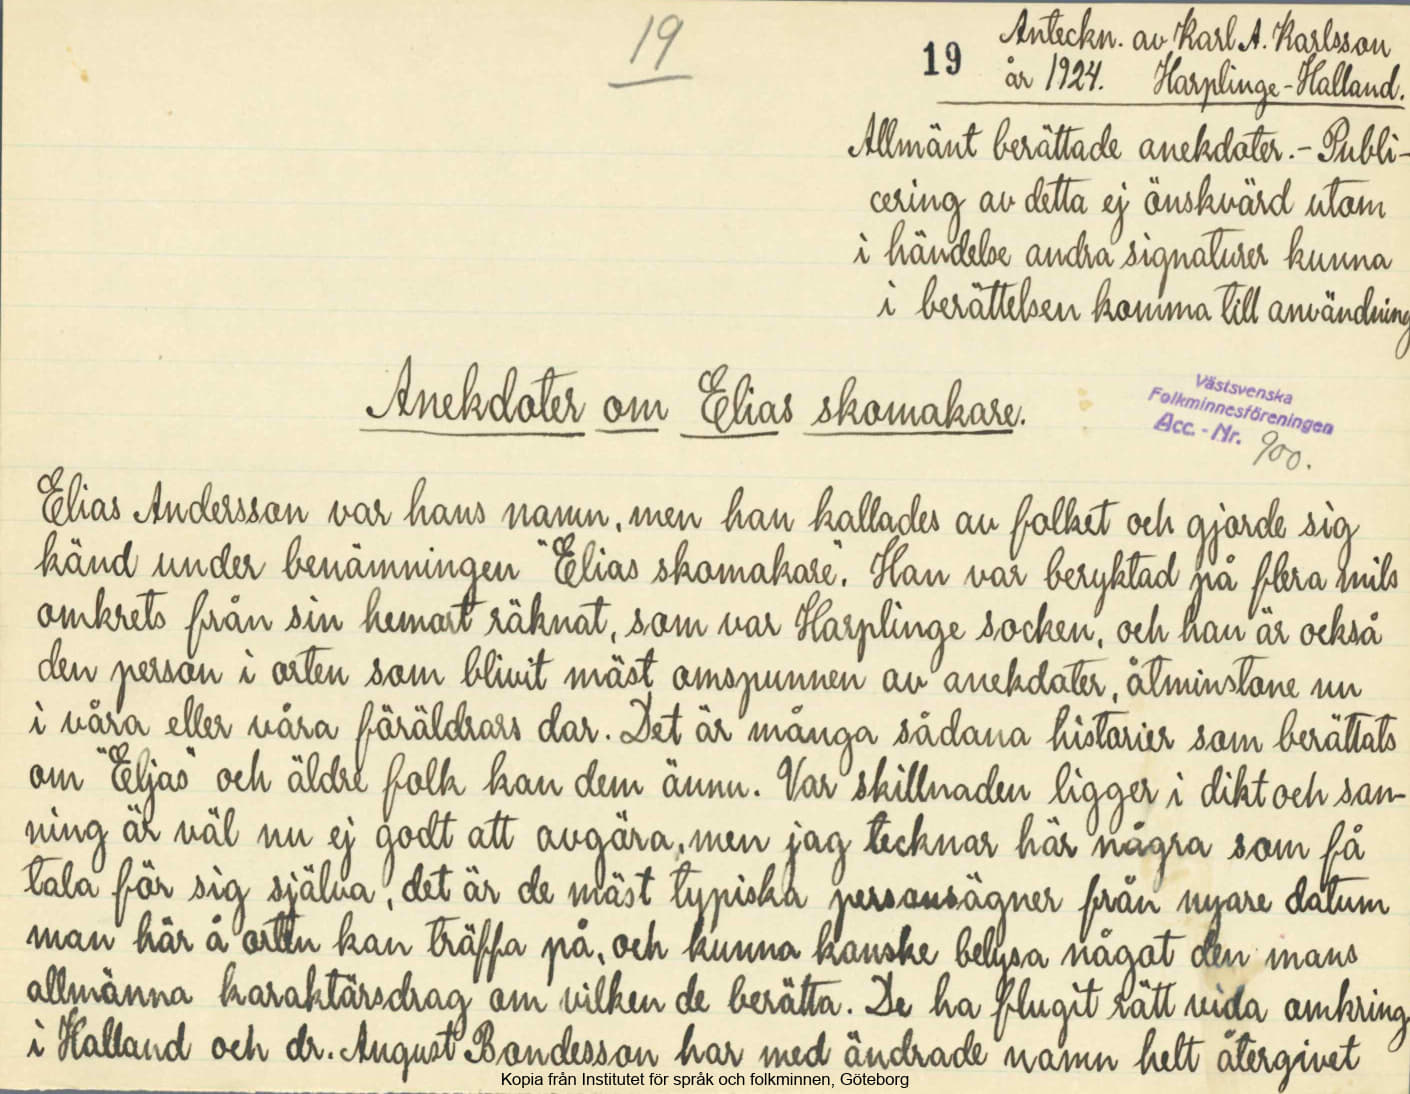 19
19
Anteckn. av Karl A. Karlsson
år 1924. Harplinge-Halland.
Allmänt berättade anekdoter. - Publi-
cering av detta ej önskvärd utom
i händelse andra signaturer kunna
i berättelsen komma till användning
Anekdoter om Elias skomakare.
Västsvenska
Folkminnesföreningen
Acc. - Nr. 900.
Elias Andersson var hans namn, men han kallades av folket och gjorde sig
känd under benämningen "Elias skomakare". Han var beryktad på flera mils
omkrets från sin hemort räknat, som var Harplinge socken, och han är också
den person i orten som blivit mäst omspunnen av anekdoter, åtminstone nu
i våra eller våra föräldrars dar. Det är många sådana historier som berättats
om "Eljas" och äldre folk kan dem ännu. Var skillnaden ligger i dikt och san-
ning är väl nu ej godt att avgöra, men jag tecknar här några som få
tala för sig själva, det är de mäst typiska personsägner från nyare datum
man här å orten kan träffa på, och kunna kanske belysa något den mans
allmänna karaktärsdrag om vilken de berätta. De ha flugit rätt vida omkring
i Halland och dr. August Bondesson har med ändrade namn helt återgivet
Kopia från Institutet för språk och folkminnen, Göteborg